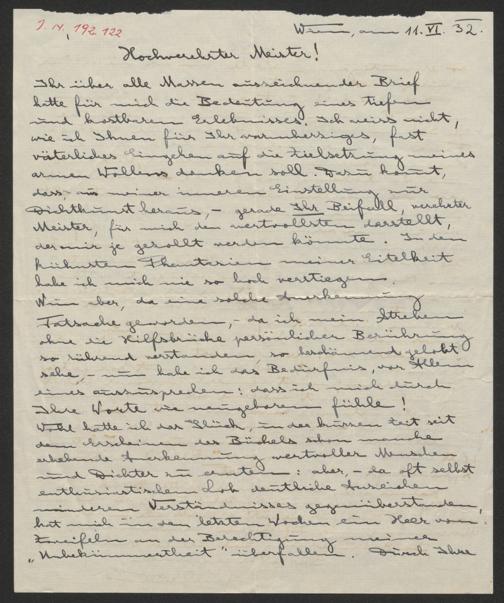 J. N. 192.122
Wien, am 11. VI. 32.
Hochverehrter Meister!
Ihr über alle Massen auszeichnender Brief
hatte für mich die Bedeutung eines tiefen
und kostbaren Erlebnisses. Ich weiss nicht,
wie ich Ihnen für Ihr warmherziges, fast
väterliches Eingehen auf die Zielsetzung meines
armen Wollens danken soll. Dazu kommt,
dass, aus meiner inneren Einstellung zur
Dichtkunst heraus, – gerade Ihr Beifall, verehrter
Meister, für mich den wertvollsten darstellt,
der mir je gezollt werden könnte. In den
kühnsten Phantasien meiner Eitelkeit
habe ich mich nie so hoch verstiegen.
Nun aber, da eine solche Anerkennung
Tatsache geworden, – da ich mein Streben
ohne die Hilfsbrücke persönlicher Berührung
so rührend verstanden, so beschämend gelobt
sehe, – nun habe ich das Bedürfnis, vor Allem
eines auszusprechen: dass ich mich durch
Ihre Worte wie neugeboren fühle!
Wohl hatte ich das Glück, in der kurzen Zeit seit
dem Erscheinen des Büchels schon manche
erhebende Anerkennung wertvoller Menschen
und Dichter zu ernten: aber, – da oft selbst
enthusiastischem Lob deutliche Anzeichen
minderen Verständnisses gegenüberstanden,
hat mich in den letzten Wochen ein Heer von
Zweifeln an der Berechtigung meiner
„Unbekümmertheit" überfallen. Durch Ihre